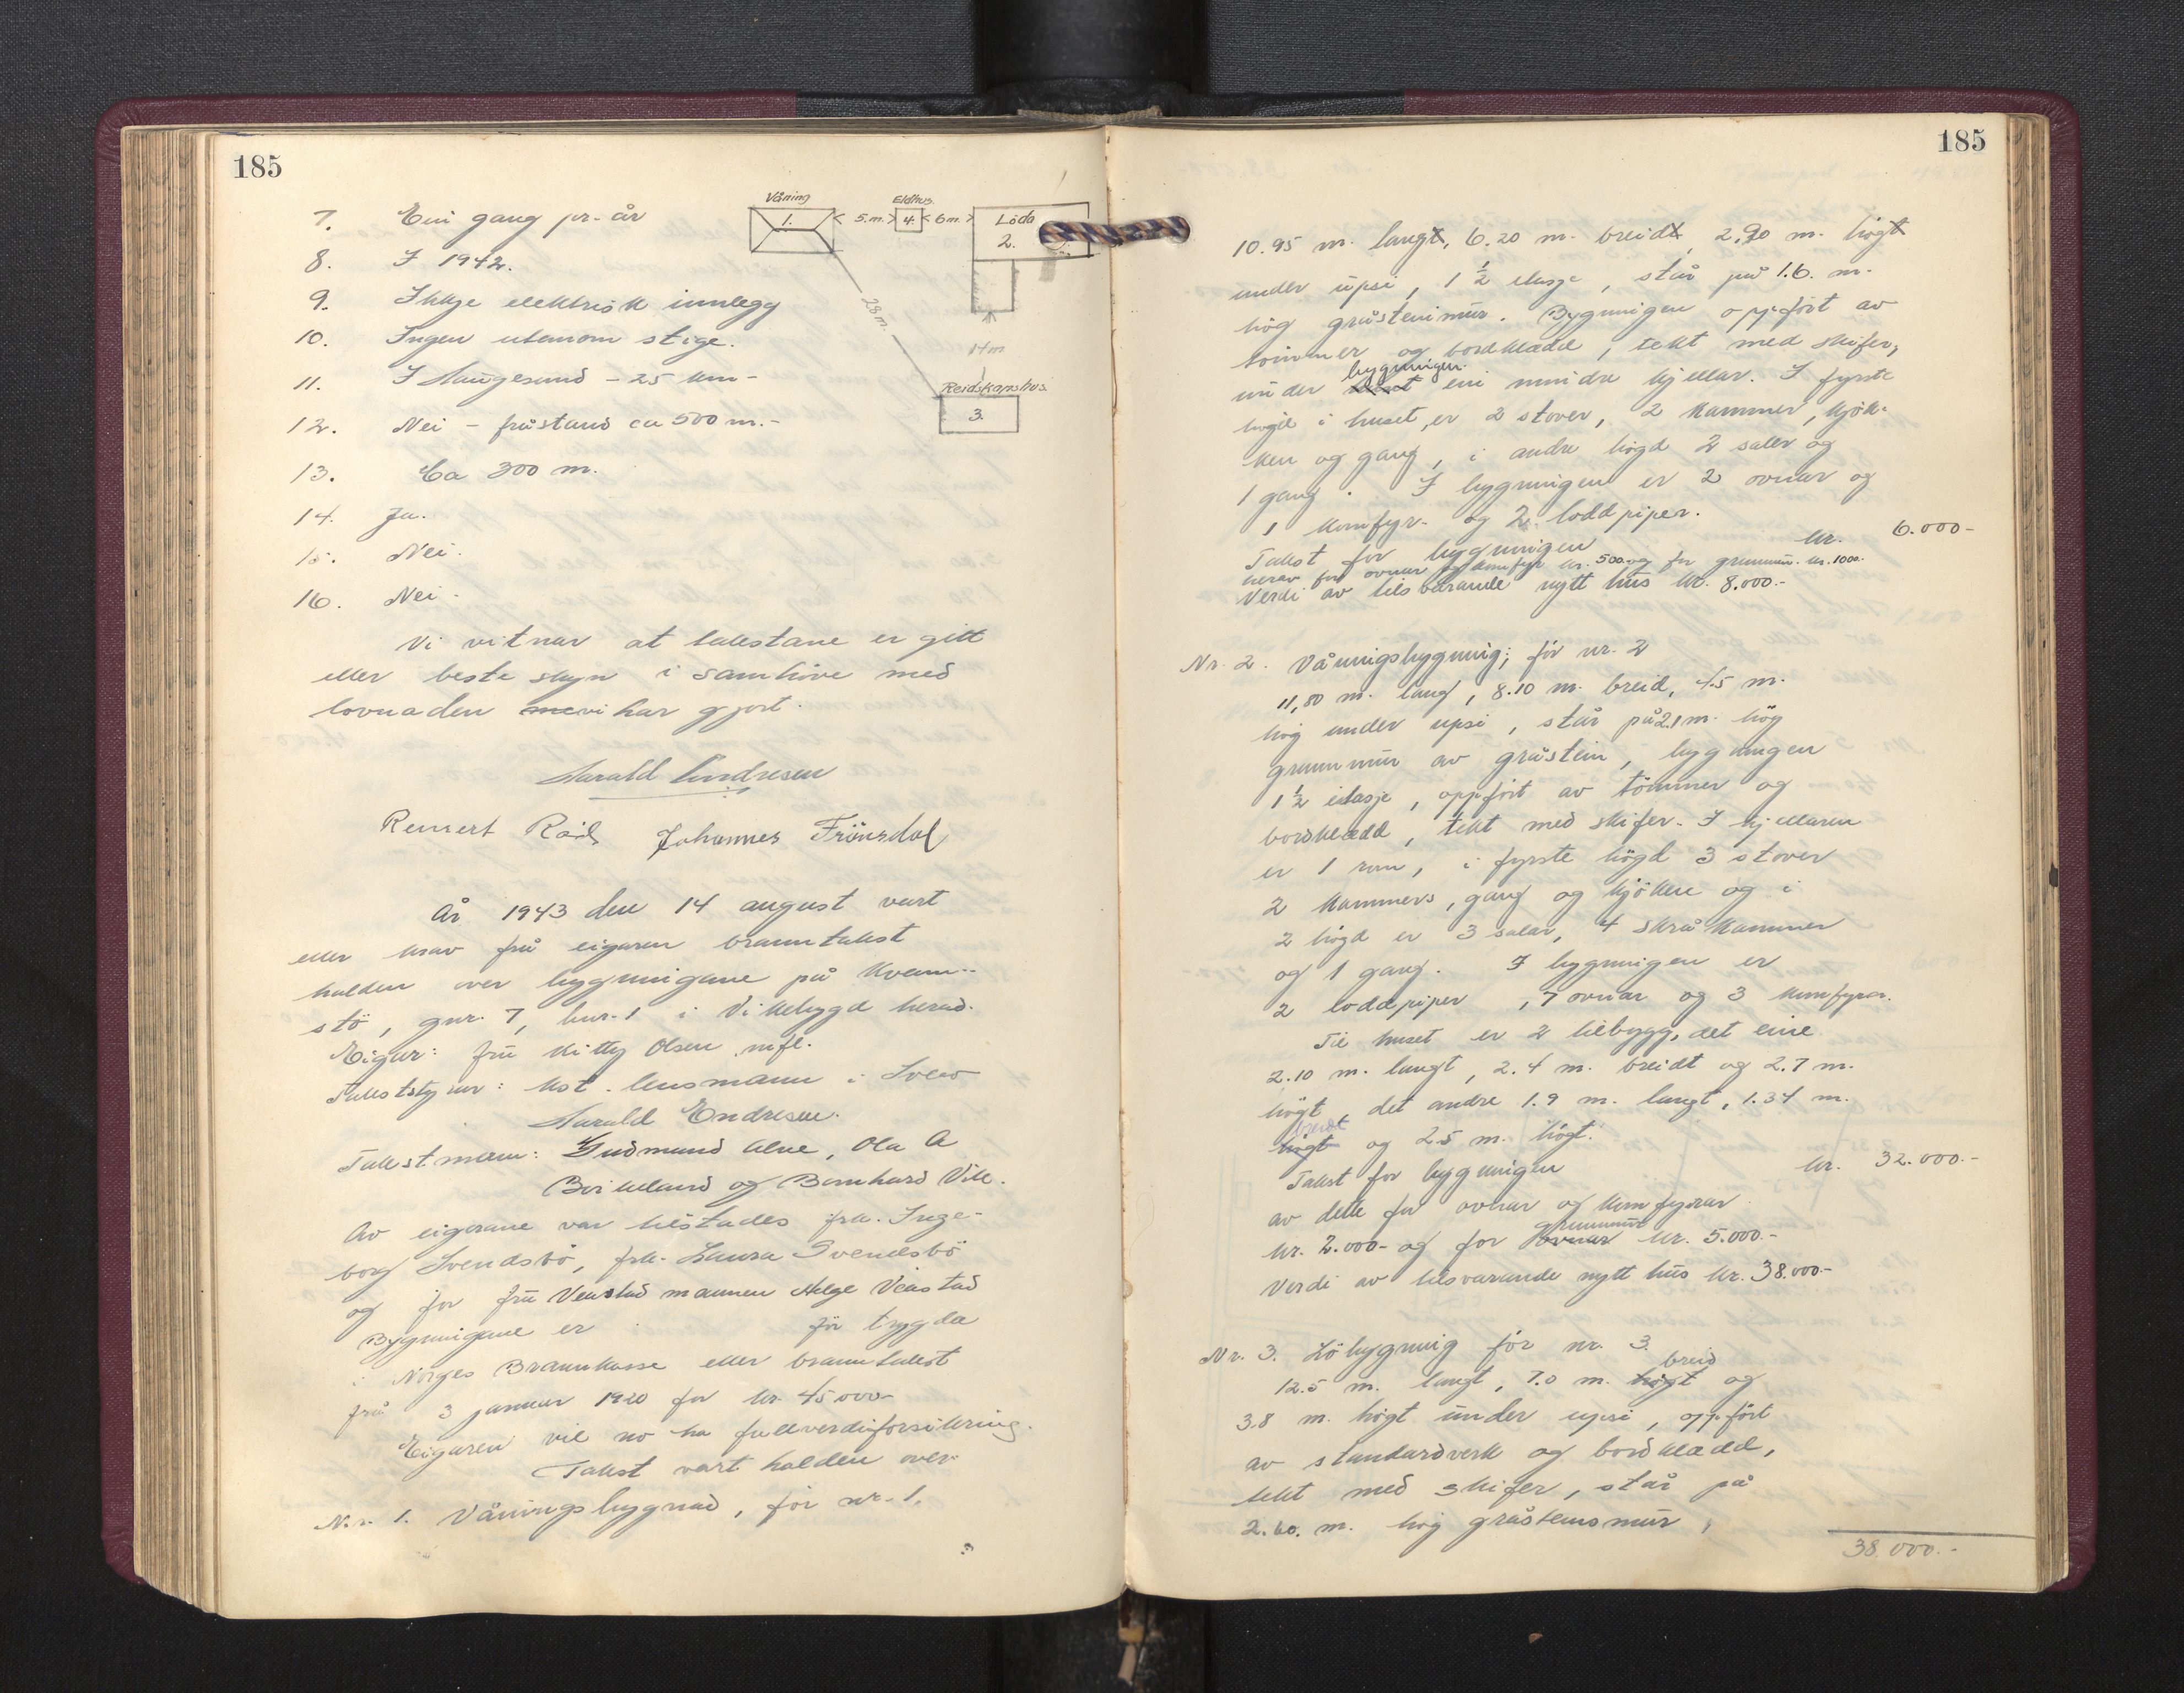 185
7. Ein gang pr. år
8. I 1942.
9. Ikkje elektrisk innlegg
10. Ingen utanom stige.
11. I Haugesund - 25 km -
12. Nei - fråstand ca 500 m.-
13. Ca 300 m.
14. Ja.
15. Nei.
16. Nei.
Våning
1.
5. m.
Eldhus.
4.
6 m.
Löda
2.
28 m.
14 m
Reidskapshus.
3.
Vi vitnar at takstane er gitt
etter beste skyn i samhöve med
lovnaden me vi har gjort.
Harald Endresen
Rensert Johannes Frönsdal
År 1943 den 14 august vart
etter krav frå eigaren branntakst
halden over bygningane på Kvam-
stö, gnr. 7, bnr. 1 i Vikebygd herad.
Eigar: fru Kitty Olsen mfl.
Takststyrar: kst. lensmann i Sveio
Harald Endresen.
Takstmenn: Gudmund Alne, Ola A
Birkeland og Bernhard Vik.
Av eigarane var tilstades frk. Inge-
borg Svendsbö, frk. Laura Svendsbö
og for fru Veastad mannen Helge Veastad
Bygningane er för trygda
i Norges Brannkasse etter branntakst
frå 3 januar 1920 for kr. 45000-
Eigaren vil no ha fullverdiforsikring.
Takst vart halden over:
Nr. 1. Våningsbygnad, för nr. 1.
185
10.95 m. langt, 6.20 m. breidt, 2,90 m. högt
under upsi, 1 1/2 etasje, står på 1.6. m.
hög gråsteinmur. Bygningen oppfört av
tömmer og bordkledd, tekt med skifer,
under bygningen ein mindre kjellar. I fyrste
högd i huset, er 2 stover, 2 kammer, kjök-
ken og gang, i andre högd 2 saler og
1 gang. I bygningen er 2 ovnar og
1 komfyr. og 2. loddpiper.
Takst for bygningen kr. 6.000-
herav for ovnar og komfyr kr. 500 og for grunnmur. kr. 1000.
Verdi av tilsvarande nytt hus kr. 8.000.-
Nr. 2. Våningsbygning; för nr. 2
11,80 m. lang, 8.10 m. breid, 4.5 m.
hög under upsi, står på 2.1 m. hög
grunnmur av gråstein, bygningen
1 1/2 etasje, oppfört av tömmer og
bordkledd, tekt med skifer. I kjellaren
er 1 rom, i fyrste högd 3 stover
2 kammers, gang og kjöken og i
2 högd er 3 salar, 4 skråkammer
og 1 gang. I bygningen er
2 loddpiper, 7 ovnar og 3 komfyrer.
Til huset er 2 tilbygg, det eine
2.10 m. langt, 2.4 m. breidt og 2.7 m.
högt, det andre 1.9 m. langt, 1.34 m.
högt breidt og 2.5 m. högt.
Takst for bygningen kr. 32.000.-
av dette for ovnar og komfyrar
kr. 2.000- og for ovnar grunnmur kr. 5.000.-
Verdi av tilsvarande nytt hus kr. 38.000-
Nr. 3. Löbygning för nr. 3.
12.5 m. langt, 7.0 m. högt breid og
3.8 m. högt under upsi, oppfört
av standardverk og bordkledd,
tekt med skifer, står på
2.60. m. hög gråsteinsmur,
38.000.-